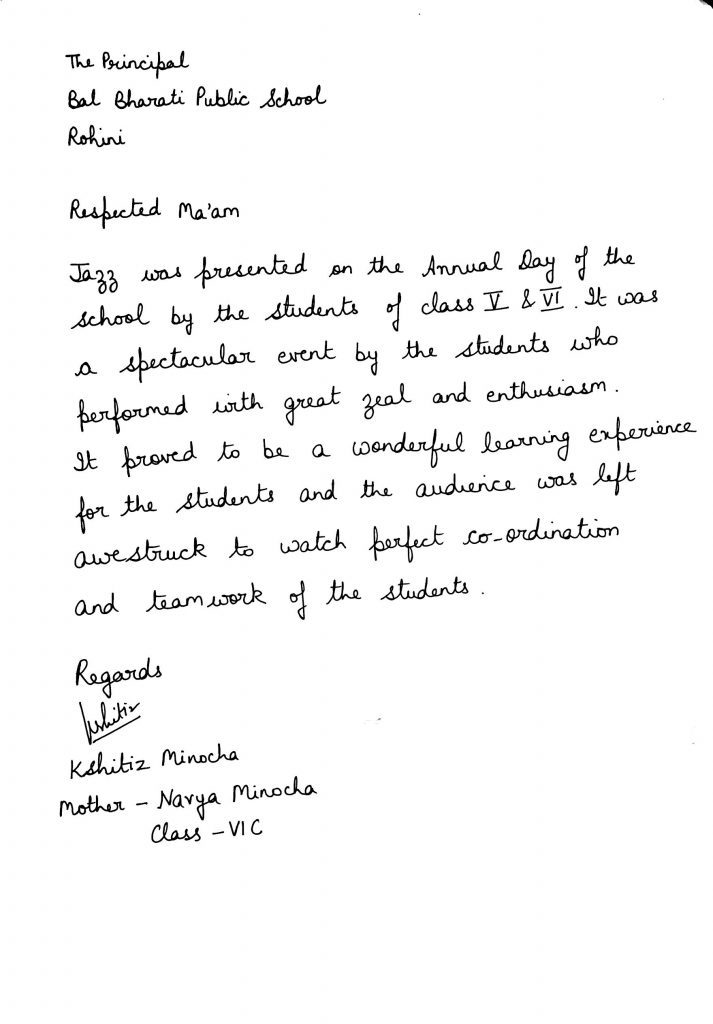 The Principal
Bal Bharati Public School
Rohini
Respected Ma'am
Jazz was presented on the Annual Day of the
school by the students of class V & VI. It was
a spectacular event by the students who
performed with great zeal and enthusiasm.
It proved to be a wonderful learning experience
for the students and the audience was left
awestruck to watch perfect co-ordination
and teamwork of the students.
Regards
Kshitiz
Kshitiz Minocha
Mother - Navya Minocha
Class - VI C